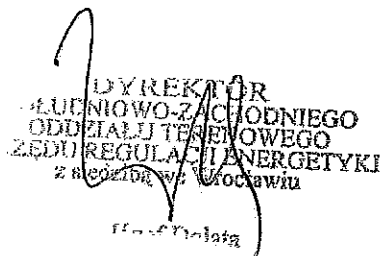 DYREKTOR
ŁUDNIOWO-ZACHODNIEGO
ODDZIAŁU TERENOWEGO
ZĘDU REGULACJI ENERGETYKI
z siedzibą we Wrocławiu